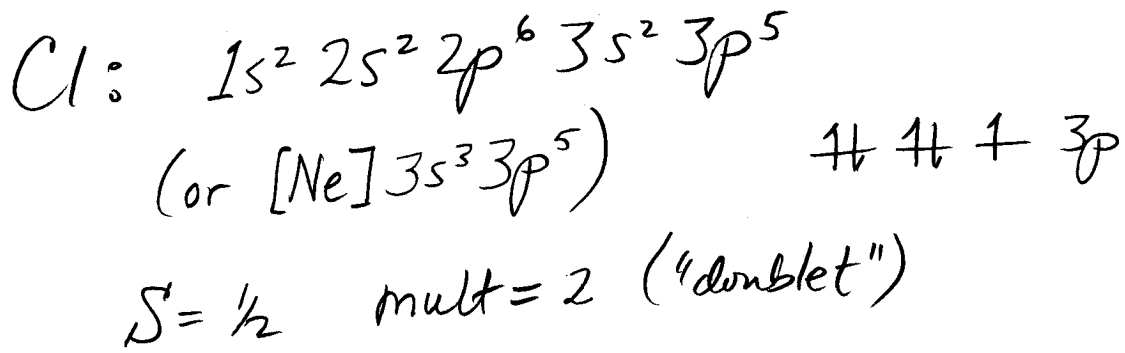 Cl: 1s² 2s² 2p⁶ 3s² 3p⁵
(or [Ne] 3s³ 3p⁵) ⥮ ⥮ ↿ 3p
S = ½ mult = 2 ("doublet")